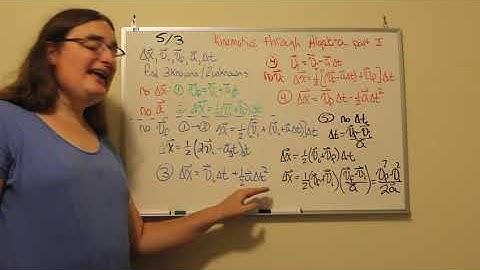 5/3 Kinematics Through Algebra part I
Δx⃗, v⃗ᵢ, v⃗f, a⃗, Δt
3 knowns/2 unknowns
no Δx⃗ ① v⃗f = v⃗ᵢ + a⃗Δt
no a⃗ ② Δx⃗ = ½(v⃗ᵢ + v⃗f)Δt
no v⃗f ① → ② Δx⃗ = ½(v⃗ᵢ + (v⃗ᵢ + a⃗Δt))Δt
③ Δx⃗ = v⃗ᵢΔt + ½a⃗Δt²
④ v⃗ᵢ = v⃗f - a⃗Δt
no v⃗ᵢ Δx⃗ = ½[(v⃗f - a⃗Δt) + v⃗f]Δt
④ Δx⃗ = v⃗fΔt - ½a⃗Δt²
⑤ no Δt
Δt = (v⃗f - v⃗ᵢ)/a⃗
Δx⃗ = ½(v⃗ᵢ + v⃗f)Δt
Δx⃗ = ½(v⃗f + v⃗ᵢ)((v⃗f - v⃗ᵢ)/a⃗) = (v⃗f² - v⃗ᵢ²)/2a⃗